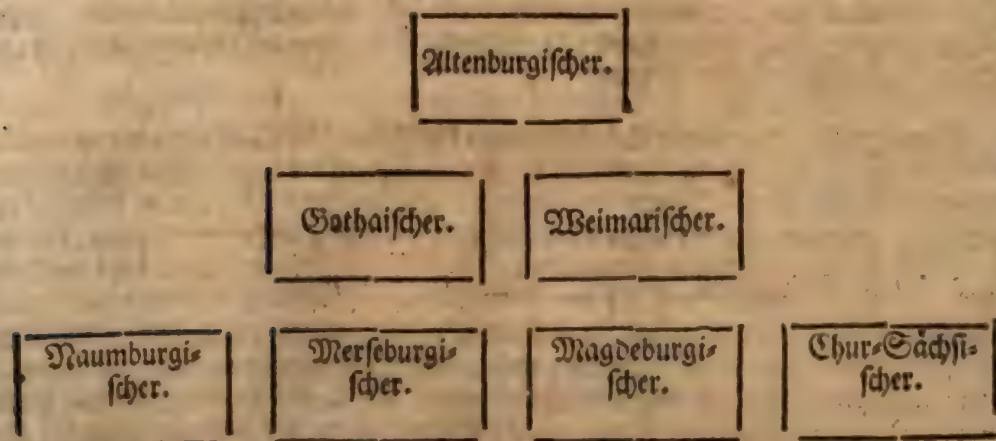 Altenburgiſcher.
Gothaiſcher.
Weimariſcher.
Naumburgi⸗
ſcher.
Merſeburgi⸗
ſcher.
Magdeburgi⸗
ſcher.
Chur⸗Sächſi⸗
ſcher.